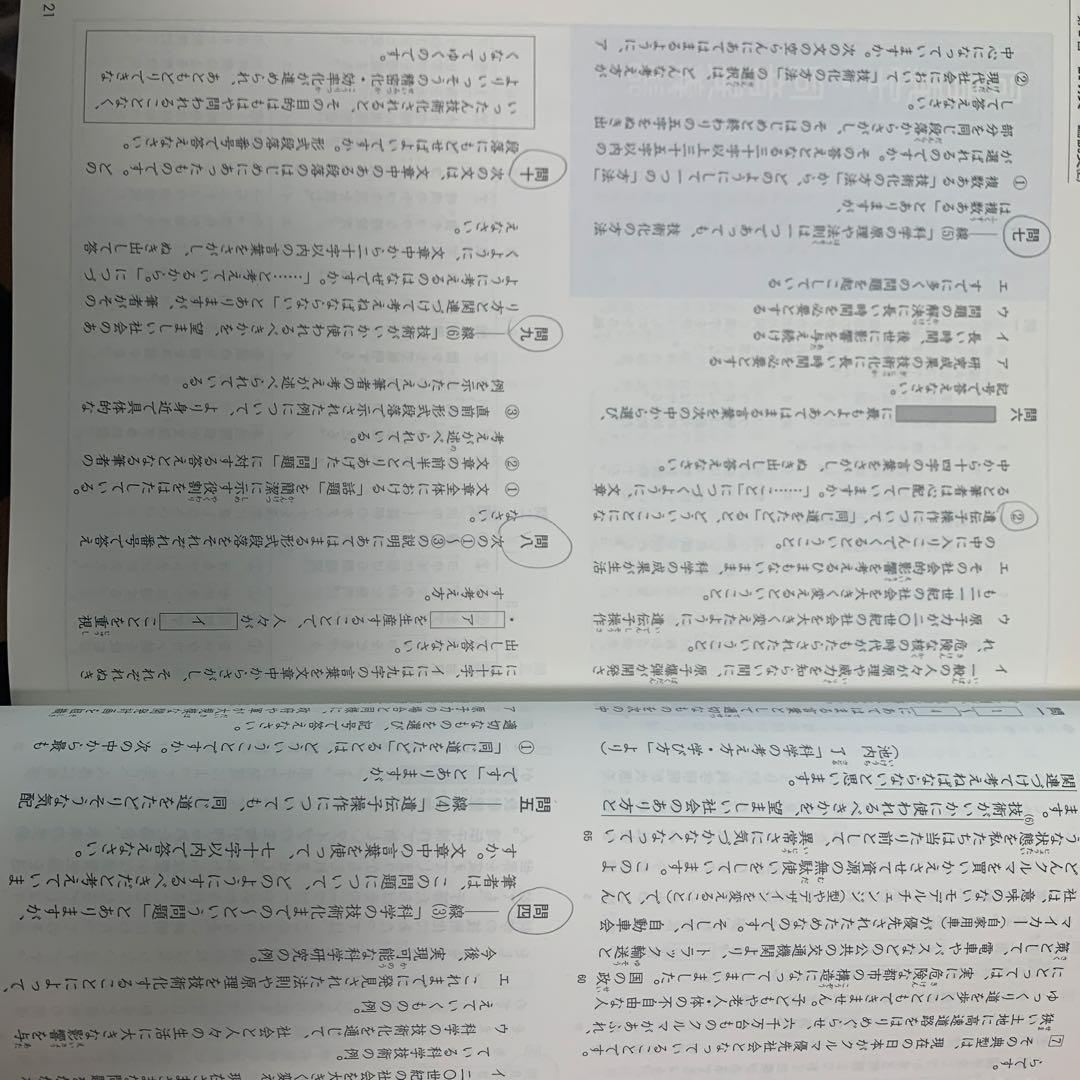 らです。
7 その典型は、現在の日本がクルマ優先社会となっていることです。
狭い土地に高速道路をはりめぐらせ、六千万台ものクルマがあふれ、
ゆっくり道を歩くこともできません。子どもや老人・体の不自由な人
にとっては、実に危険な都市の構造になってしまいました。国の政
策として、電車やバスなどの公共の交通機関より、トラック輸送と
マイカー(自家用車)が優先されたためなのです。そして、自動車会
社は、意味のないモデルチェンジ(型やデザインを変えること)で、どん
どんクルマを買いかえさせて資源の無駄使いをしています。このよ
うな状態を私たちは当たり前として、異常さに気づかなくなってい
ます。(6)技術がいかに使われるべきかを、望ましい社会のあり方と
関連づけて考えねばならないと思います。
(池内 了「科学の考え方・学び方」より)
60
65
ている科学技術の例。
ウ 科学の技術化を通して、社会と人々の生活に大きな影響を与
えていくものの例。
エ これまでに発見された法則や原理を技術化することによって、
今後実現可能な科学研究の例。
問四 ――線(3)「科学の技術化までの~という問題」とありますが、
筆者は、この問題について、どのようにするべきだと考えていま
すか。文章中の言葉を使って、七十字以内で答えなさい。
問五 ――線(4)「遺伝子操作についても、同じ道をたどりそうな気配
です」とありますが、
① 「同じ道をたどる」とは、どういうことですか。次の中から最も
適切なものを選び、記号で答えなさい。
イ 一般の人々が原理や威力を知らない間に、原子爆弾が開発さ
れ、危険な核の時代がもたらされたということ。
ウ 原子力が二〇世紀の社会を大きく変えたように、遺伝子操作
も二一世紀の社会を大きく変えるということ。
エ その社会的影響を考えるひまもないまま、科学の成果が生活
の中に入りこんでくるということ。
② 遺伝子操作について、「同じ道」をたどると、どういうことにな
ると筆者は心配していますか。「……こと」につづくように、文章
中から十四字の言葉をさがし、ぬき出して答えなさい。
問六 に最もよくあてはまる言葉を次の中から選び、
記号で答えなさい。
ア 研究成果の技術化に長い時間を必要とする
イ 長い時間、後世に影響を与え続ける
ウ 問題の解決に長い時間を必要とする
エ すでに多くの問題を起こしている
問七 ――線(5)「科学の原理や法則は一つであっても、技術化の方法
は複数ある」とありますが、
① 複数ある「技術化の方法」から、どのようにして一つの「方法」
が選ばれるのですか。その答えとなる三十字以上三十五字以内の
部分を同じ段落からさがし、そのはじめと終わりの五字をぬき出
して答えなさい。
② 現代社会において「技術化の方法」の選択は、どんな考え方が
中心になっていますか。次の文の空らんにあてはまるように、ア
には十字、イには九字の言葉を文章中からさがし、それぞれぬき
出して答えなさい。
・ ア を生産することで、人々が イ ことを重視
する考え方。
問八 次の①~③の説明にあてはまる形式段落をそれぞれ番号で答え
なさい。
① 文章全体における「話題」を簡潔に示す役割をはたしている。
② 文章の前半でとりあげた「問題」に対する答えとなる筆者の
考えが述べられている。
③ 直前の形式段落で示された例について、より身近で具体的な
例を示したうえで筆者の考えが述べられている。
問九 ――線(6)「技術がいかに使われるべきかを、望ましい社会のあ
り方と関連づけて考えねばならない」とありますが、筆者がその
ように考えるのはなぜですか。「……と考えているから。」につづ
くように、文章中から二十字以内の言葉をさがし、ぬき出して答
えなさい。
問十 次の文は、文章中のある段落のはじめにあったものです。どの
段落にもどせばよいですか。形式段落の番号で答えなさい。
いったん技術化されると、その目的はもはや問われることなく、
よりいっそうの精密化・効率化が進められ、あともどりできな
くなってゆくのです。
21